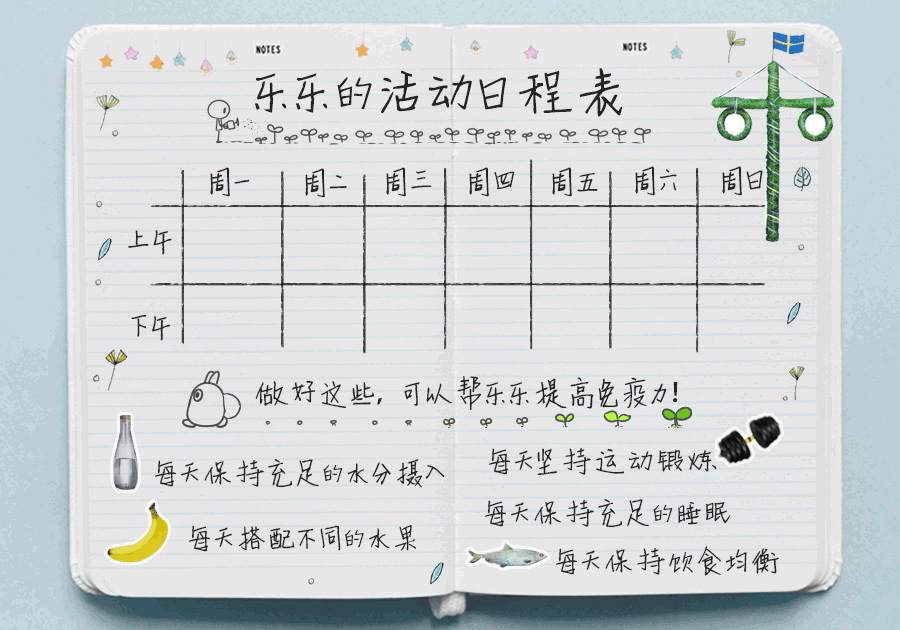 NOTES NOTES
乐乐的活动日程表
周一 周二 周三 周四 周五 周六 周日
上午
下午
做好这些，可以帮乐乐提高免疫力！
每天保持充足的水分摄入
每天坚持运动锻炼
每天搭配不同的水果
每天保持充足的睡眠
每天保持饮食均衡